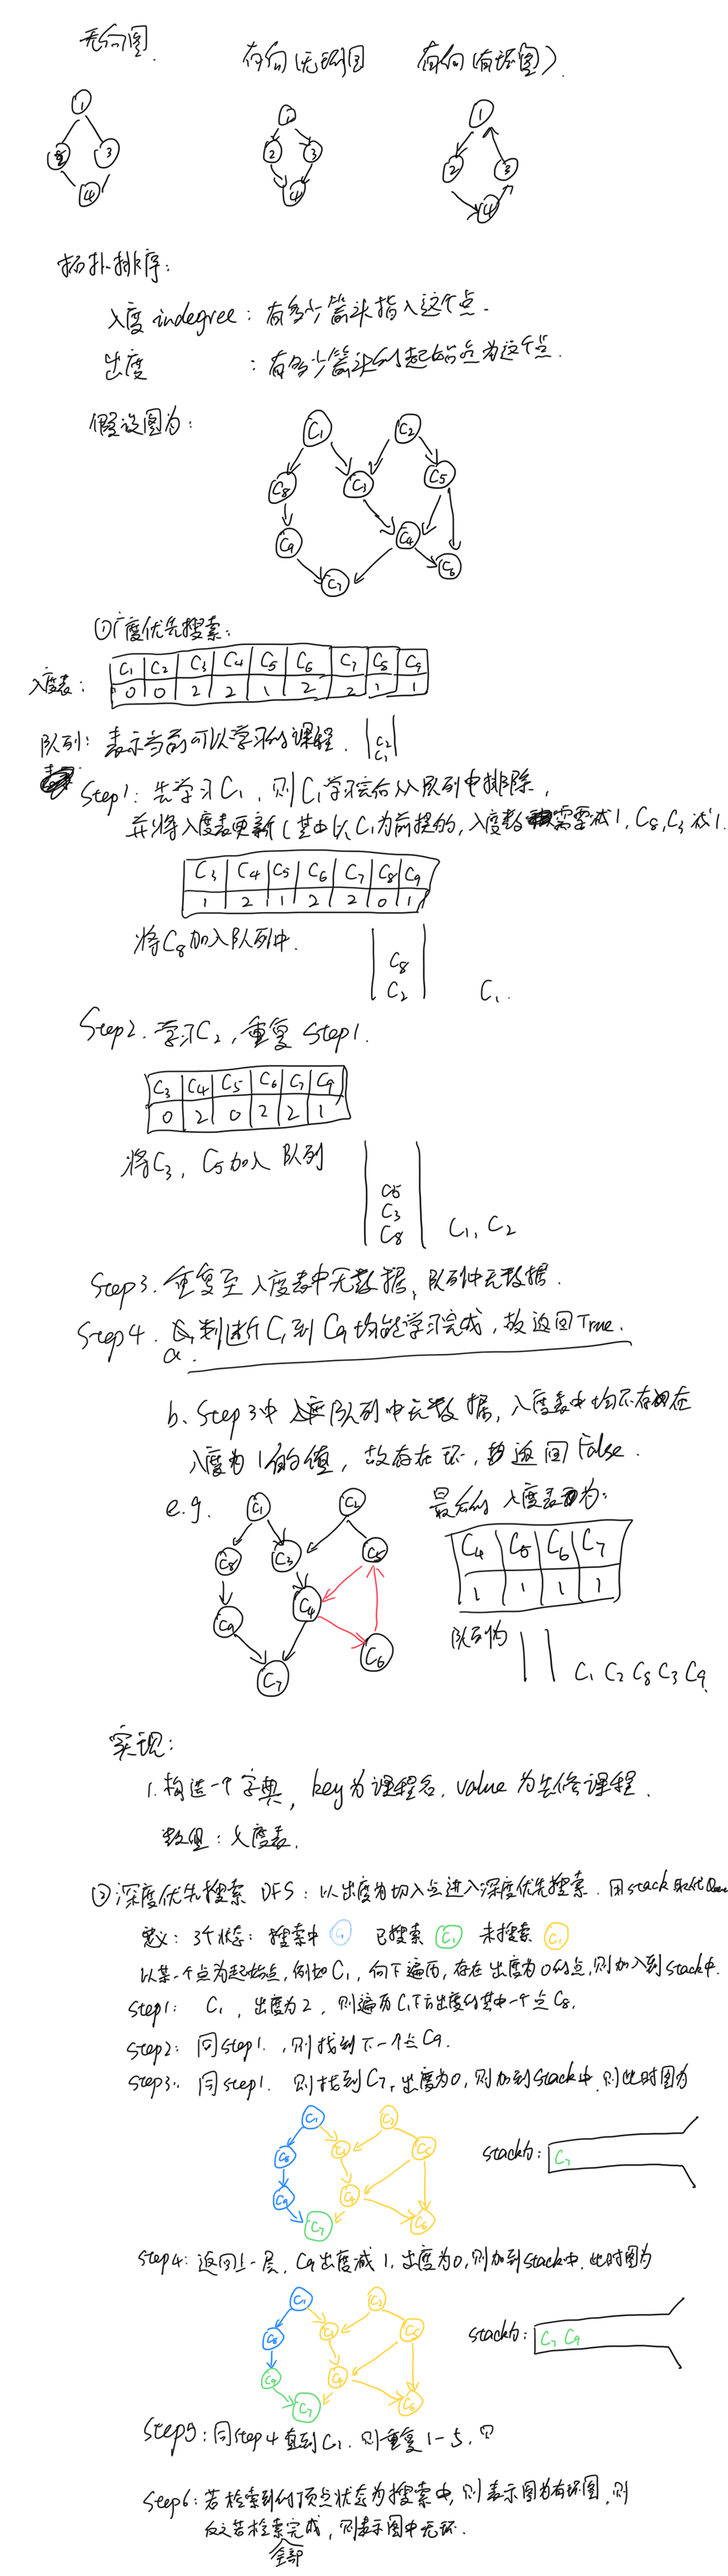 无向图. 有向(无环)图 有向(有环图).
1 1 1
2 3 2 3 2 3
4 4 4
拓扑排序:
入度 indegree: 有多少箭头指入这个点.
出度 : 有多少箭头的起始点为这个点.
假设图为:
C1 C2
C8 C3 C5
C9 C4 C6
C7
①广度优先搜索:
入度表:
C1 C2 C3 C4 C5 C6 C7 C8 C9
0 0 2 2 1 2 2 1 1
队列: 表示当前可以学习的课程.
C2
C1
Step1: 先学习C1, 则C1学习完后从队列中排除,
并将入度表更新(其中以C1为前提的,入度数需要减1, C8,C3减1.
C3 C4 C5 C6 C7 C8 C9
1 2 1 2 2 0 1
将C8加入队列中.
C8
C2 C1.
Step2. 学习C2, 重复 Step1.
C3 C4 C5 C6 C7 C9
0 2 0 2 2 1
将C3, C5加入 队列
C5
C3
C8 C1, C2
Step3. 重复至 入度表中无数据, 队列中无数据.
Step4. a. 判断C1到C9均能学习完成, 故返回True.
b. Step3中 队列中无数据, 入度表中均不存在
入度为1的值, 故存在环, 返回False.
e.g. 最后的入度表为:
C1 C2
C8 C3 C5
C9 C4
C7 C6
C4 C5 C6 C7
1 1 1 1
队列为 C1 C2 C8 C3 C9.
实现:
1. 构造一个字典, key为课程名, value 为先修课程.
数组: 入度表.
②深度优先搜索 DFS: 以出度为切入点进入深度优先搜索. 用stack
定义: 3个状态: 搜索中 C1 已搜索 C1 未搜索 C1
以某一个点为起始点, 例如C1, 向下遍历, 存在出度为0的点, 则加入到stack中.
Step1: C1, 出度为2, 则遍历C1下方出度的其中一个点C8.
Step2: 同step1, 则找到下一个点C9.
Step3: 同step1. 则找到C7, 出度为0, 则加到stack中, 则此时图为
C1 C2
C8 C3 C5
C9 C4
C7 C6
stack为: C7
Step4: 返回上一层, C9出度减1, 出度为0, 则加到stack中. 此时图为
C1 C2
C8 C3 C5
C9 C4
C7 C6
stack为: C7 C9
Step5: 同step4 直到C1. 则重复1-5,
Step6: 若检索到的顶点状态为搜索中, 则表示图为有环图, 则
反之若检索完成, 则表示图中无环.
全部